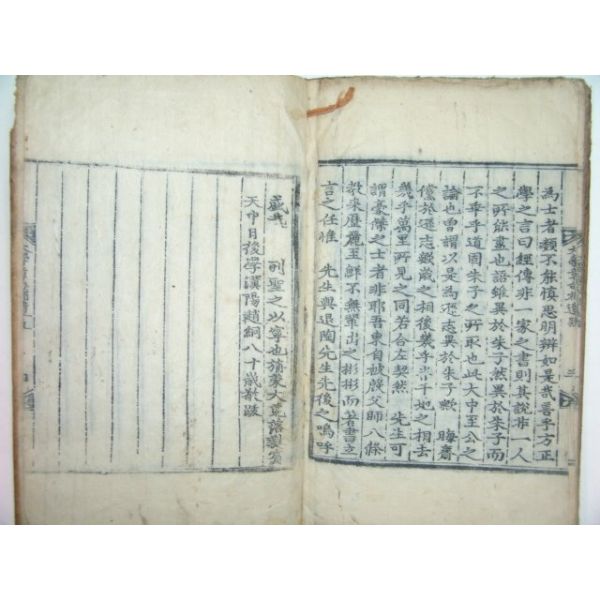 為士者類不能慎思明辨如是哉善乎方正
學之言曰經傳非一家之書則其說非一人
之所能盡也語雖異於朱子然異於朱子而
不乖乎道固朱子之所取也此大中至公之
論也曾謂以是為忠志異於朱子歟 晦齋
僅於遜志數歲之相後幾乎 地之相去
幾乎萬里所見之同若合左契然 先生可
謂豪傑之士者非耶吾東自被殷父師八條
教來歷麗至鮮不無輩出之彬彬而若書立
言之任惟 先生與退陶先生先後之嗚呼
盛哉 列聖之以寧也 大荒落
天中月後學漢陽趙絅八十歲敬跋
三